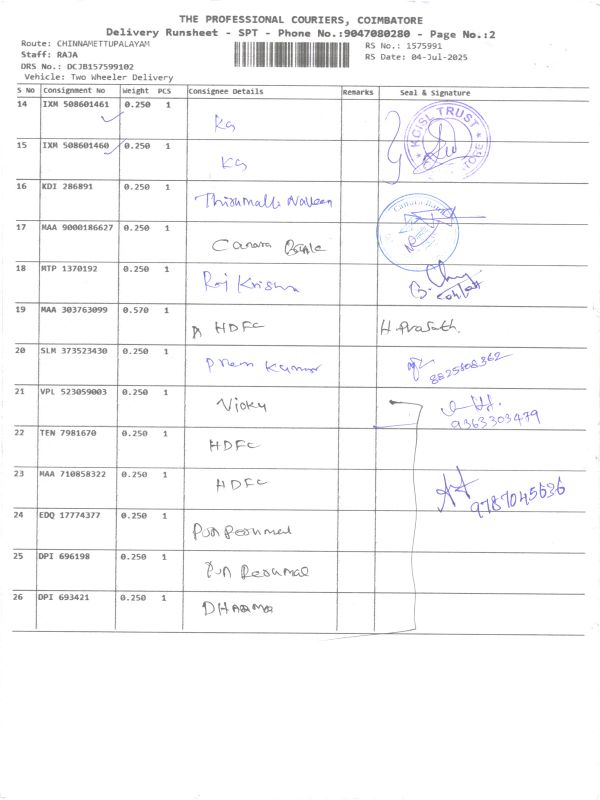 THE PROFESSIONAL COURIERS, COIMBATORE
Delivery Runsheet - SPT - Phone No.:9047080280 - Page No.:2
Route: CHINNAMETTUPALAYAM RS No.: 1575991
Staff: RAJA RS Date: 04-Jul-2025
DRS No.: DCJB157599102
Vehicle: Two Wheeler Delivery
S No Consignment No Weight PCS Consignee Details Remarks Seal & Signature
14 IXM 508601461 0.250 1 KG KGISL TRUST
15 IXM 508601460 0.250 1 KG
16 KDI 286891 0.250 1 Thirumalai Naveen Canara Bank
17 MAA 9000186627 0.250 1 Canara Bank
18 MTP 1370192 0.250 1 Raj Krishna B.
19 MAA 303763099 0.570 1 HDFC H. Prasath.
20 SLM 373523430 0.250 1 Prem Kumar 8825808362
21 VPL 523059003 0.250 1 Vicky 9363303479
22 TEN 7981670 0.250 1 HDFC
23 MAA 710858322 0.250 1 HDFC 9787045636
24 EDQ 17774377 0.250 1 Pun Perumal
25 DPI 696198 0.250 1 Pun Perumal
26 DPI 693421 0.250 1 DHARMA